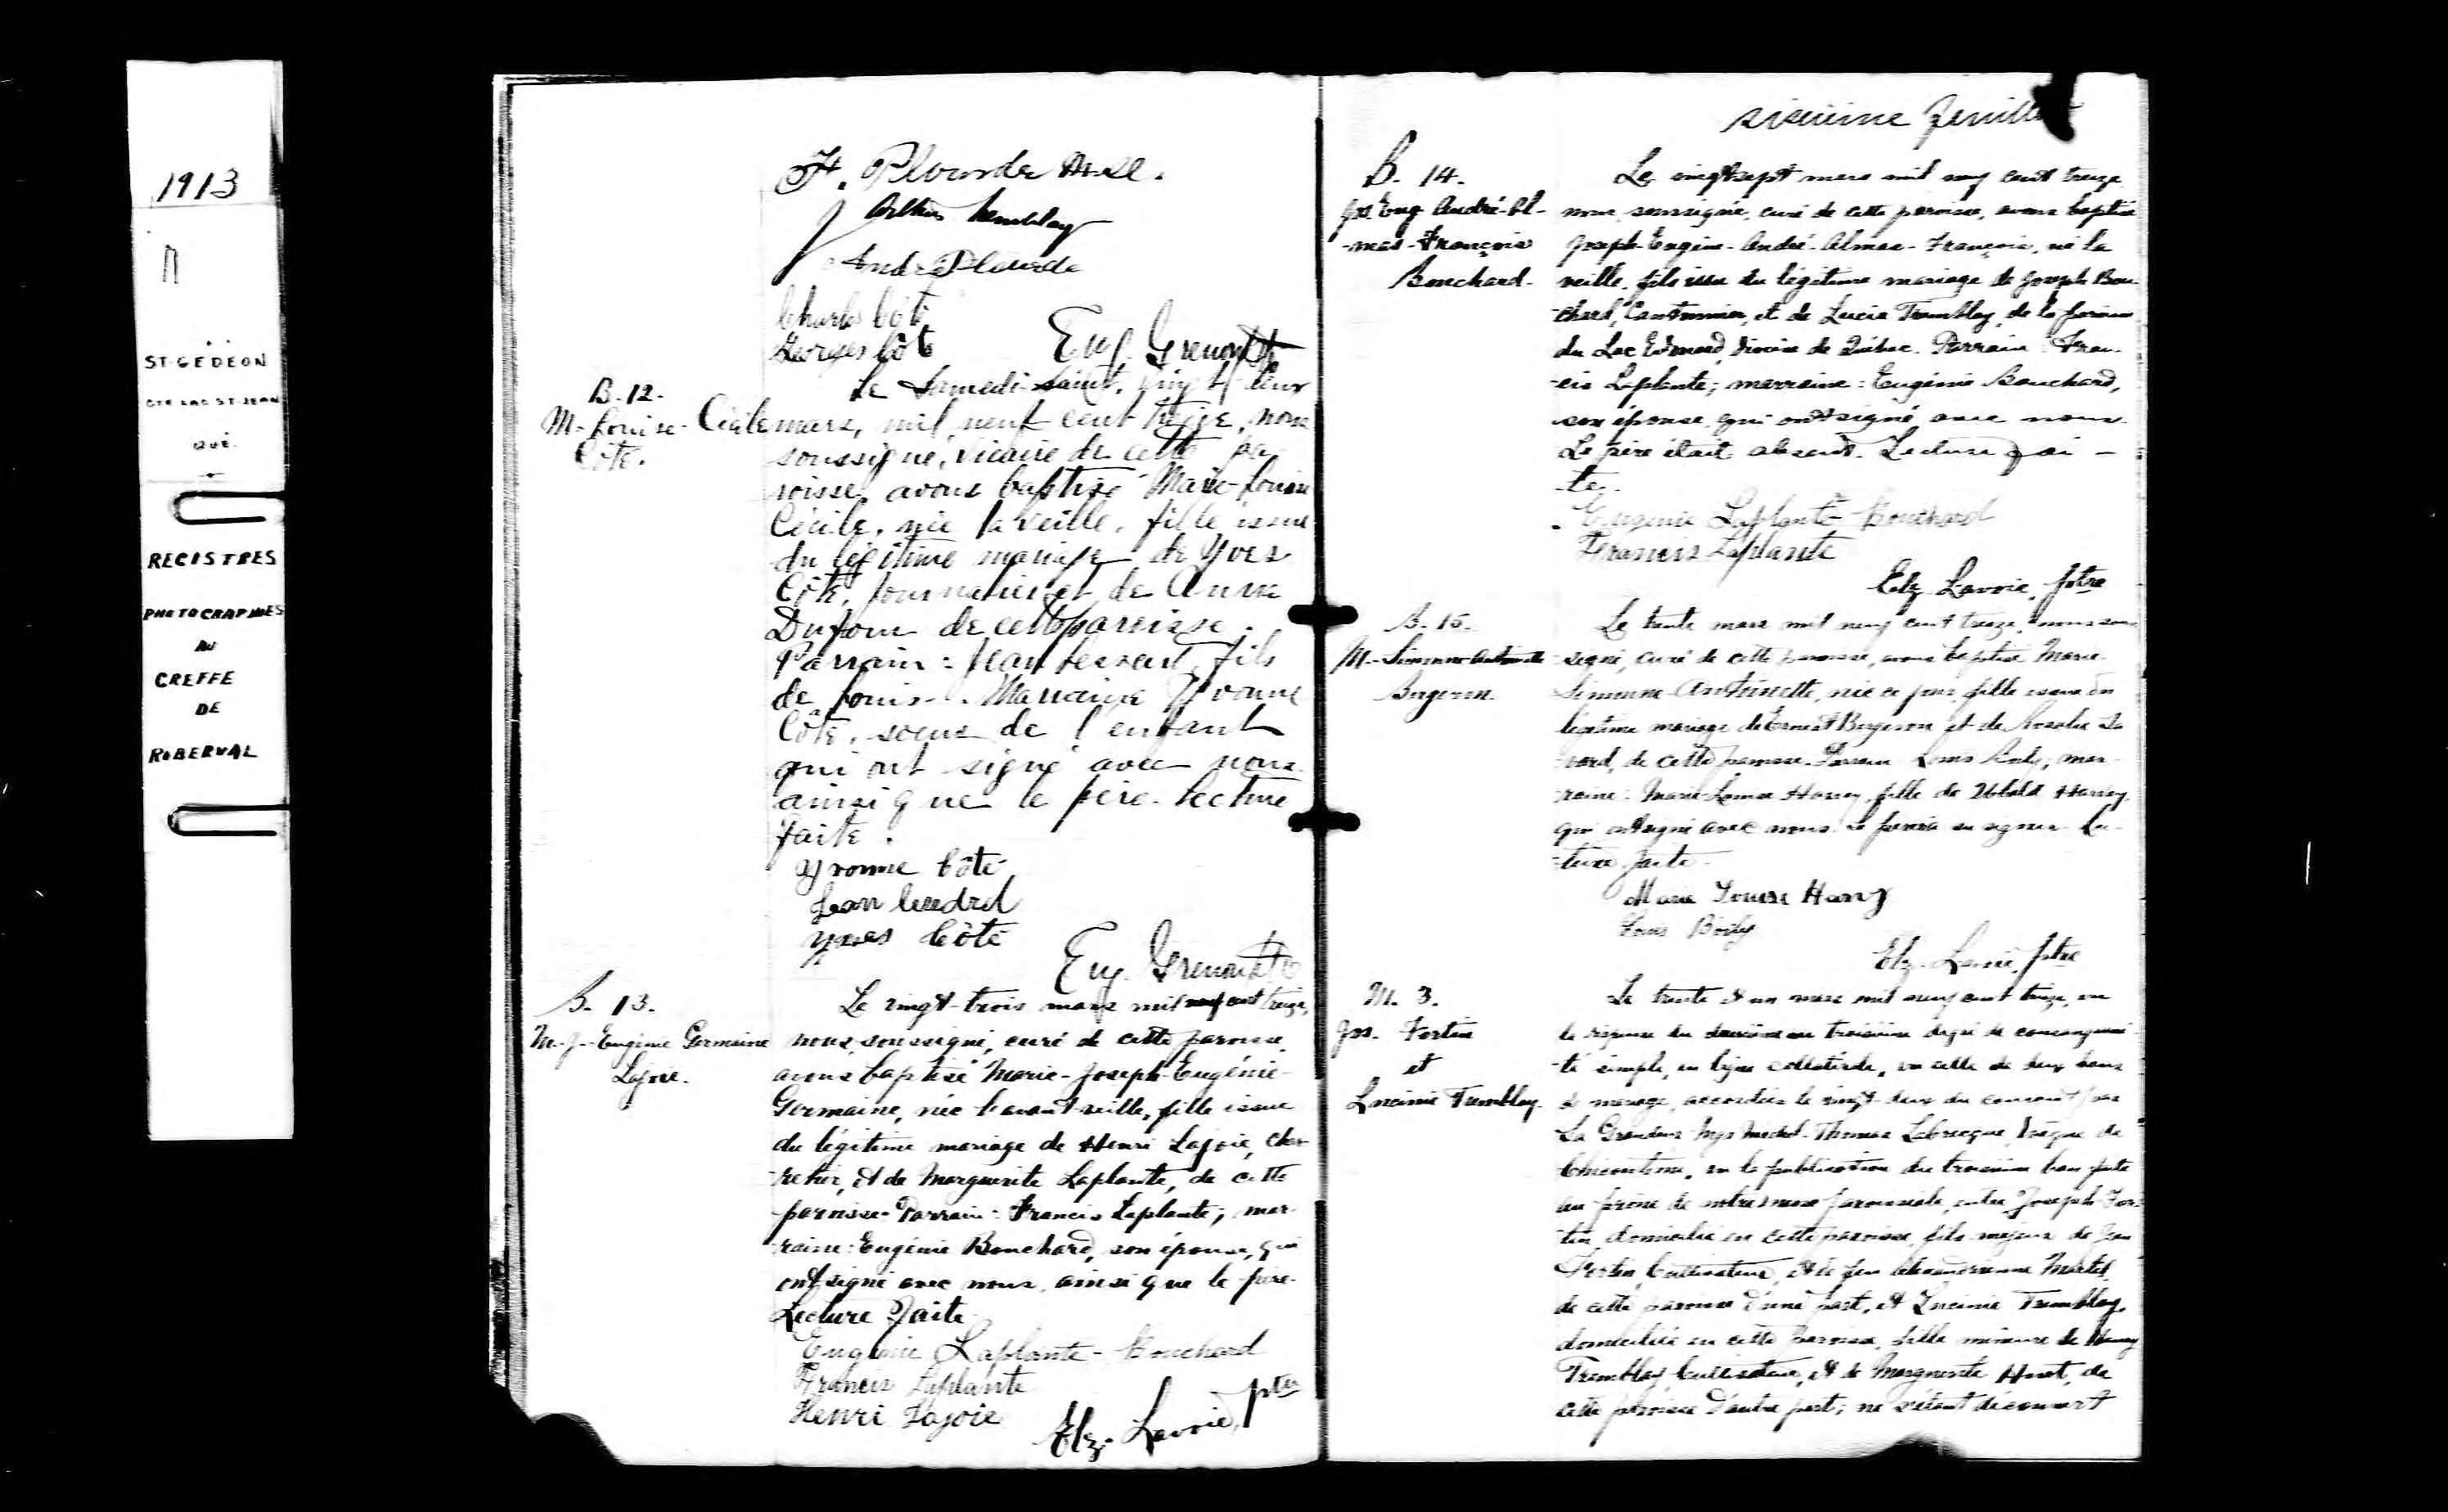 1913
ST-GEDEON
CTE LAC ST-JEAN
QUÉ.
REGISTRES
PHOTOGRAPHIES
AU
GREFFE
DE
ROBERVAL
H. Plourde
Arthur Tremblay
André Plourde
Charles Côté
Georges Côté
Eug. Grenon
B-12.
M-Louise-Cécile
Côté.
Le Samedi-Saint, vingt-deux
mars, mil neuf cent treize, nous
soussigné, vicaire de cette pa-
roisse, avons baptisé Marie-Louise
Cécile, née la veille, fille issue
du légitime mariage de Yves
Côté, journalier et de Anna
Dufour de cette paroisse.
Parrain: Jean Gendr, fils
de Louis. Marraine Yvonne
Côté, soeur de l'enfant
qui ont signé avec nous
ainsi que le père. Lecture
faite.
Yvonne Côté
Jean
Yves Côté
Eug. Grenon
B. 13.
M-J-Eugénie Germaine
Lajoie.
Le vingt-trois mars mil neuf cent treize,
nous, soussigné, curé de cette paroisse,
avons baptisé Marie-Joseph-Eugénie-
Germaine, née l'avant-veille, fille issue
du légitime mariage de Henri Lajoie, char-
retier, et de Marguerite Laplante, de cette
paroisse. Parrain: Francis Laplante; mar-
raine: Eugénie Bouchard, son épouse, qui
ont signé avec nous, ainsi que le père.
Lecture faite.
Eugénie Laplante-Bouchard
Francis Laplante
Henri Lajoie
Elz. Lavoie, ptre
sixième feuillet
B. 14.
Jos. Eug. André-Al-
-mas-François
Bouchard.
Le vingt-sept mars mil neuf cent treize
nous, soussigné, curé de cette paroisse, avons baptisé
Joseph-Eugène-André-Almas-François, né la
veille, fils issu du légitime mariage de Joseph Bou-
chard, Cantonnier, et de Lucie Tremblay, de la paroisse
du Lac Edouard, diocèse de Québec. Parrain: Fran-
-cis Laplante; marraine: Eugénie Bouchard,
son épouse, qui ont signé avec nous.
Le père était absent. Lecture fai-
-te.
Eugénie Laplante-Bouchard
Francis Laplante
Elz. Lavoie, ptre
B. 15.
M.-Simonne-Antoinette
Bergeron.
Le trente mars mil neuf cent treize, nous sous-
signé, curé de cette paroisse, avons baptisé Marie-
Simonne-Antoinette, née ce jour, fille issue du
légitime mariage de Ernest Bergeron et de Rosalie
de cette paroisse. Parrain Louis Boily; mar-
raine: Marie-Louise Harvey, fille de Ubald Harvey,
qui ont signé avec nous. Le père n'a su signer. Lec-
-ture faite.
Marie Louise Harvey
Louis Boily
Elz. Lavoie, ptre
M. 3.
Jos. Fortin
et
Lucinie Tremblay.
Le trente et un mars mil neuf cent treize, vu
la dispense du deuxième au troisième degré de consanguini-
-té simple, en ligne collatérale, vu celle de deux bans
de mariage, accordées le vingt-deux du courant par
Sa Grandeur Mgr Michel-Thomas Labrecque, évêque de
Chicoutimi, vu la publication du troisième ban faite
au prône de notre messe paroissiale, entre Joseph For-
tin, domicilié en cette paroisse, fils majeur de Jean
Fortin, Cultivateur, et de feu Martel,
de cette paroisse d'une part, et Lucinie Tremblay,
domiciliée en cette paroisse, fille mineure de
Tremblay, Cultivateur, et de Marguerite de
cette paroisse d'autre part; ne s'étant découvert